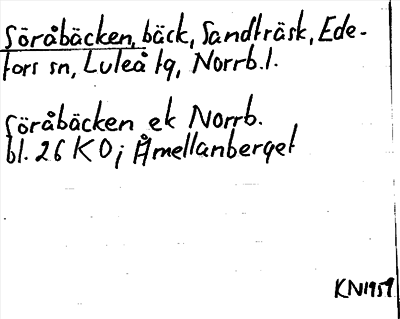 Söråbäcken, bäck, Sandträsk, Ede-
fors sn, Luleå tg, Norrb.l.
Söråbäcken ek Norrb.
bl. 26 K O; Åmellanberget
KN1959